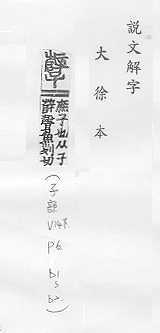 說文解字
大徐本
庶子也从子
辥聲魚列切
(子部
V14下
P6
b15
b2)